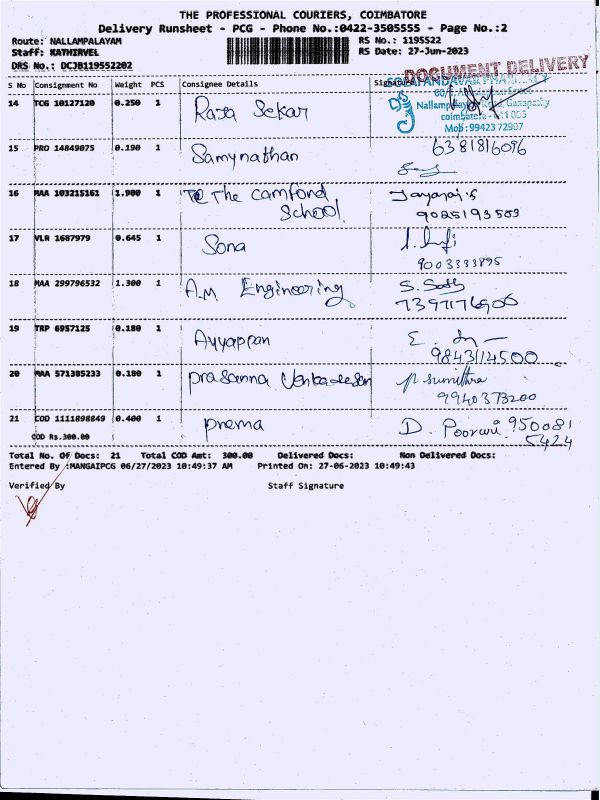 THE PROFESSIONAL COURIERS, COIMBATORE
Delivery Runsheet - PCG - Phone No.:0422-3505555 - Page No.:2
Route: NALLAMPALAYAM RS No.: 1195522
Staff: KATHIRVEL RS Date: 27-Jun-2023
DRS No.: DCJB119552202
DOCUMENT DELIVERY
S No Consignment No Weight PCS Consignee Details Signature
14 TCG 10127120 0.250 1 Raja Sekar
Nallampalayam Road, Ganapathy
Mob: 99423 72907
15 PRO 14849075 0.190 1 Samynathan 6381816096
16 MAA 103215161 1.900 1 The Camford Jayaraj.S
School 9025193503
17 VLR 1687979 0.645 1 Sona
9003333895
18 MAA 299796532 1.300 1 A.M Engineering S.
7397176906
19 TRP 6957125 0.180 1 Ayyappan E.
9843114500
20 MAA 571385233 0.180 1 Prasanna P. Sumithra
9940373200
21 COD 1111898849 0.400 1 Prema D. 950081
COD Rs.300.00 5424
Total No. Of Docs: 21 Total COD Amt: 300.00 Delivered Docs: Non Delivered Docs:
Entered By :MANGAIPCG 06/27/2023 10:49:37 AM Printed On: 27-06-2023 10:49:43
Verified By Staff Signature